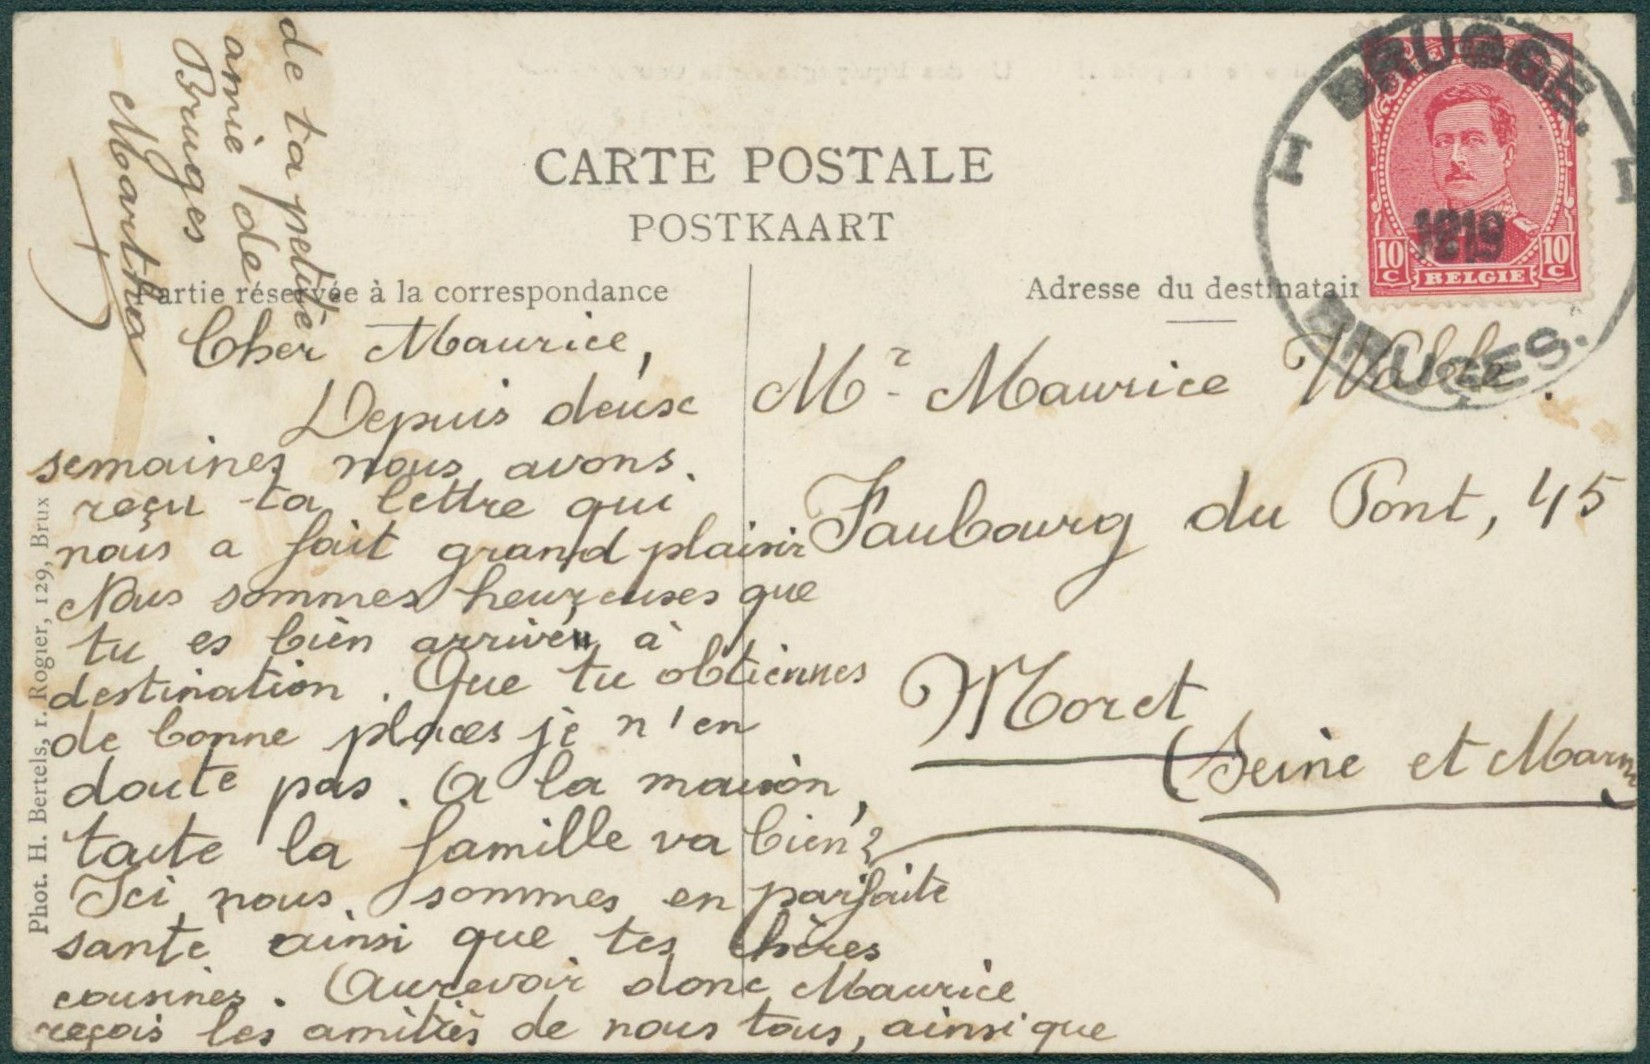 CARTE POSTALE
POSTKAART
Partie réservée à la correspondance
Cher Maurice,
Depuis deux
semaines nous avons
reçu ta lettre qui
nous a fait grand plaisir
Nous sommes heureuses que
tu es bien arrivé à
destination. Que tu obtiennes
de bonne places je n'en
doute pas. A la maison,
toute la famille va bien?
Ici nous sommes en parfaite
santé ainsi que tes chères
cousines. Aurevoir donc Maurice
reçois les amitiés de nous tous, ainsi que
de ta petite
amie de
Bruges
Martha
Adresse du destinatair
Mr Maurice
Faubourg du Pont, 45
Moret
(Seine et Marn
BRUGGE.
I I
1819
BRUGES.
10 C BELGIE 10 C
Phot. H. Bertels, r. Rogier, 129, Brux